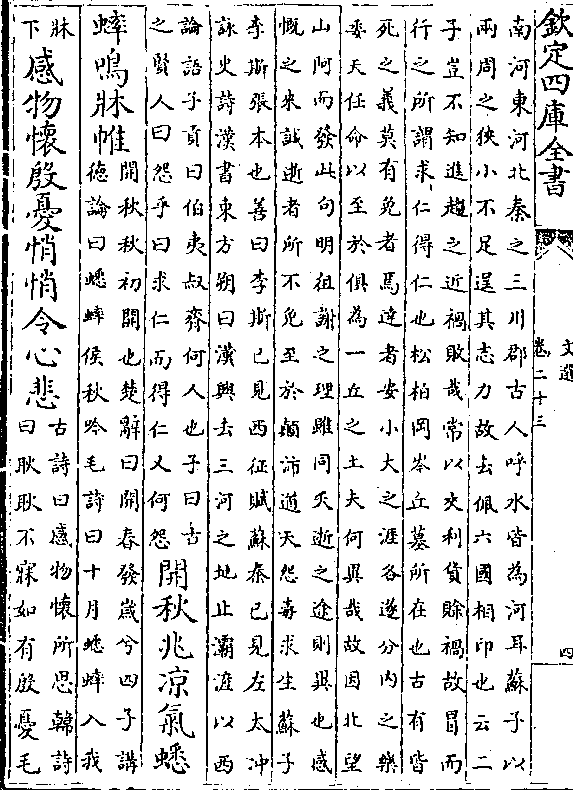 欽定四庫全書
文選
卷二十三
四
南河東河北秦之三川郡古人呼水皆為河耳蘇子以
兩周之狹小不足逞其志力故去佩六國相印也云二
子豈不知進趨之近禍敗哉常以交利貨賒禍故冒而
行之所謂求仁得仁也松柏岡岑丘墓所在也古有皆
死之義莫有免者焉達者安小大之涯各遂分内之樂
委天任命以至於俱為一丘之土夫何異哉故因北望
山阿而發此句明徂謝之理雖同夭逝之途則異也感
慨之來誠逝者所不免至於顛沛遁天怨毒求生蘇子
李斯張本也善曰李斯已見西征賦蘇秦已見左太冲
詠史詩漢書東方朔曰漢興去三河之地止灞滻以西
論語子貢曰伯夷叔齊何人也子曰古
之賢人曰怨乎曰求仁而得仁又何怨
開秋兆凉氣蟋
蟀鳴牀帷
開秋秋初開也楚辭曰開春發歲兮四子講
德論曰蟋蟀俟秋吟毛詩曰十月蟋蟀入我
牀
下
感物懷殷憂悄悄令心悲
古詩曰感物懷所思韓詩
曰耿耿不寐如有殷憂毛